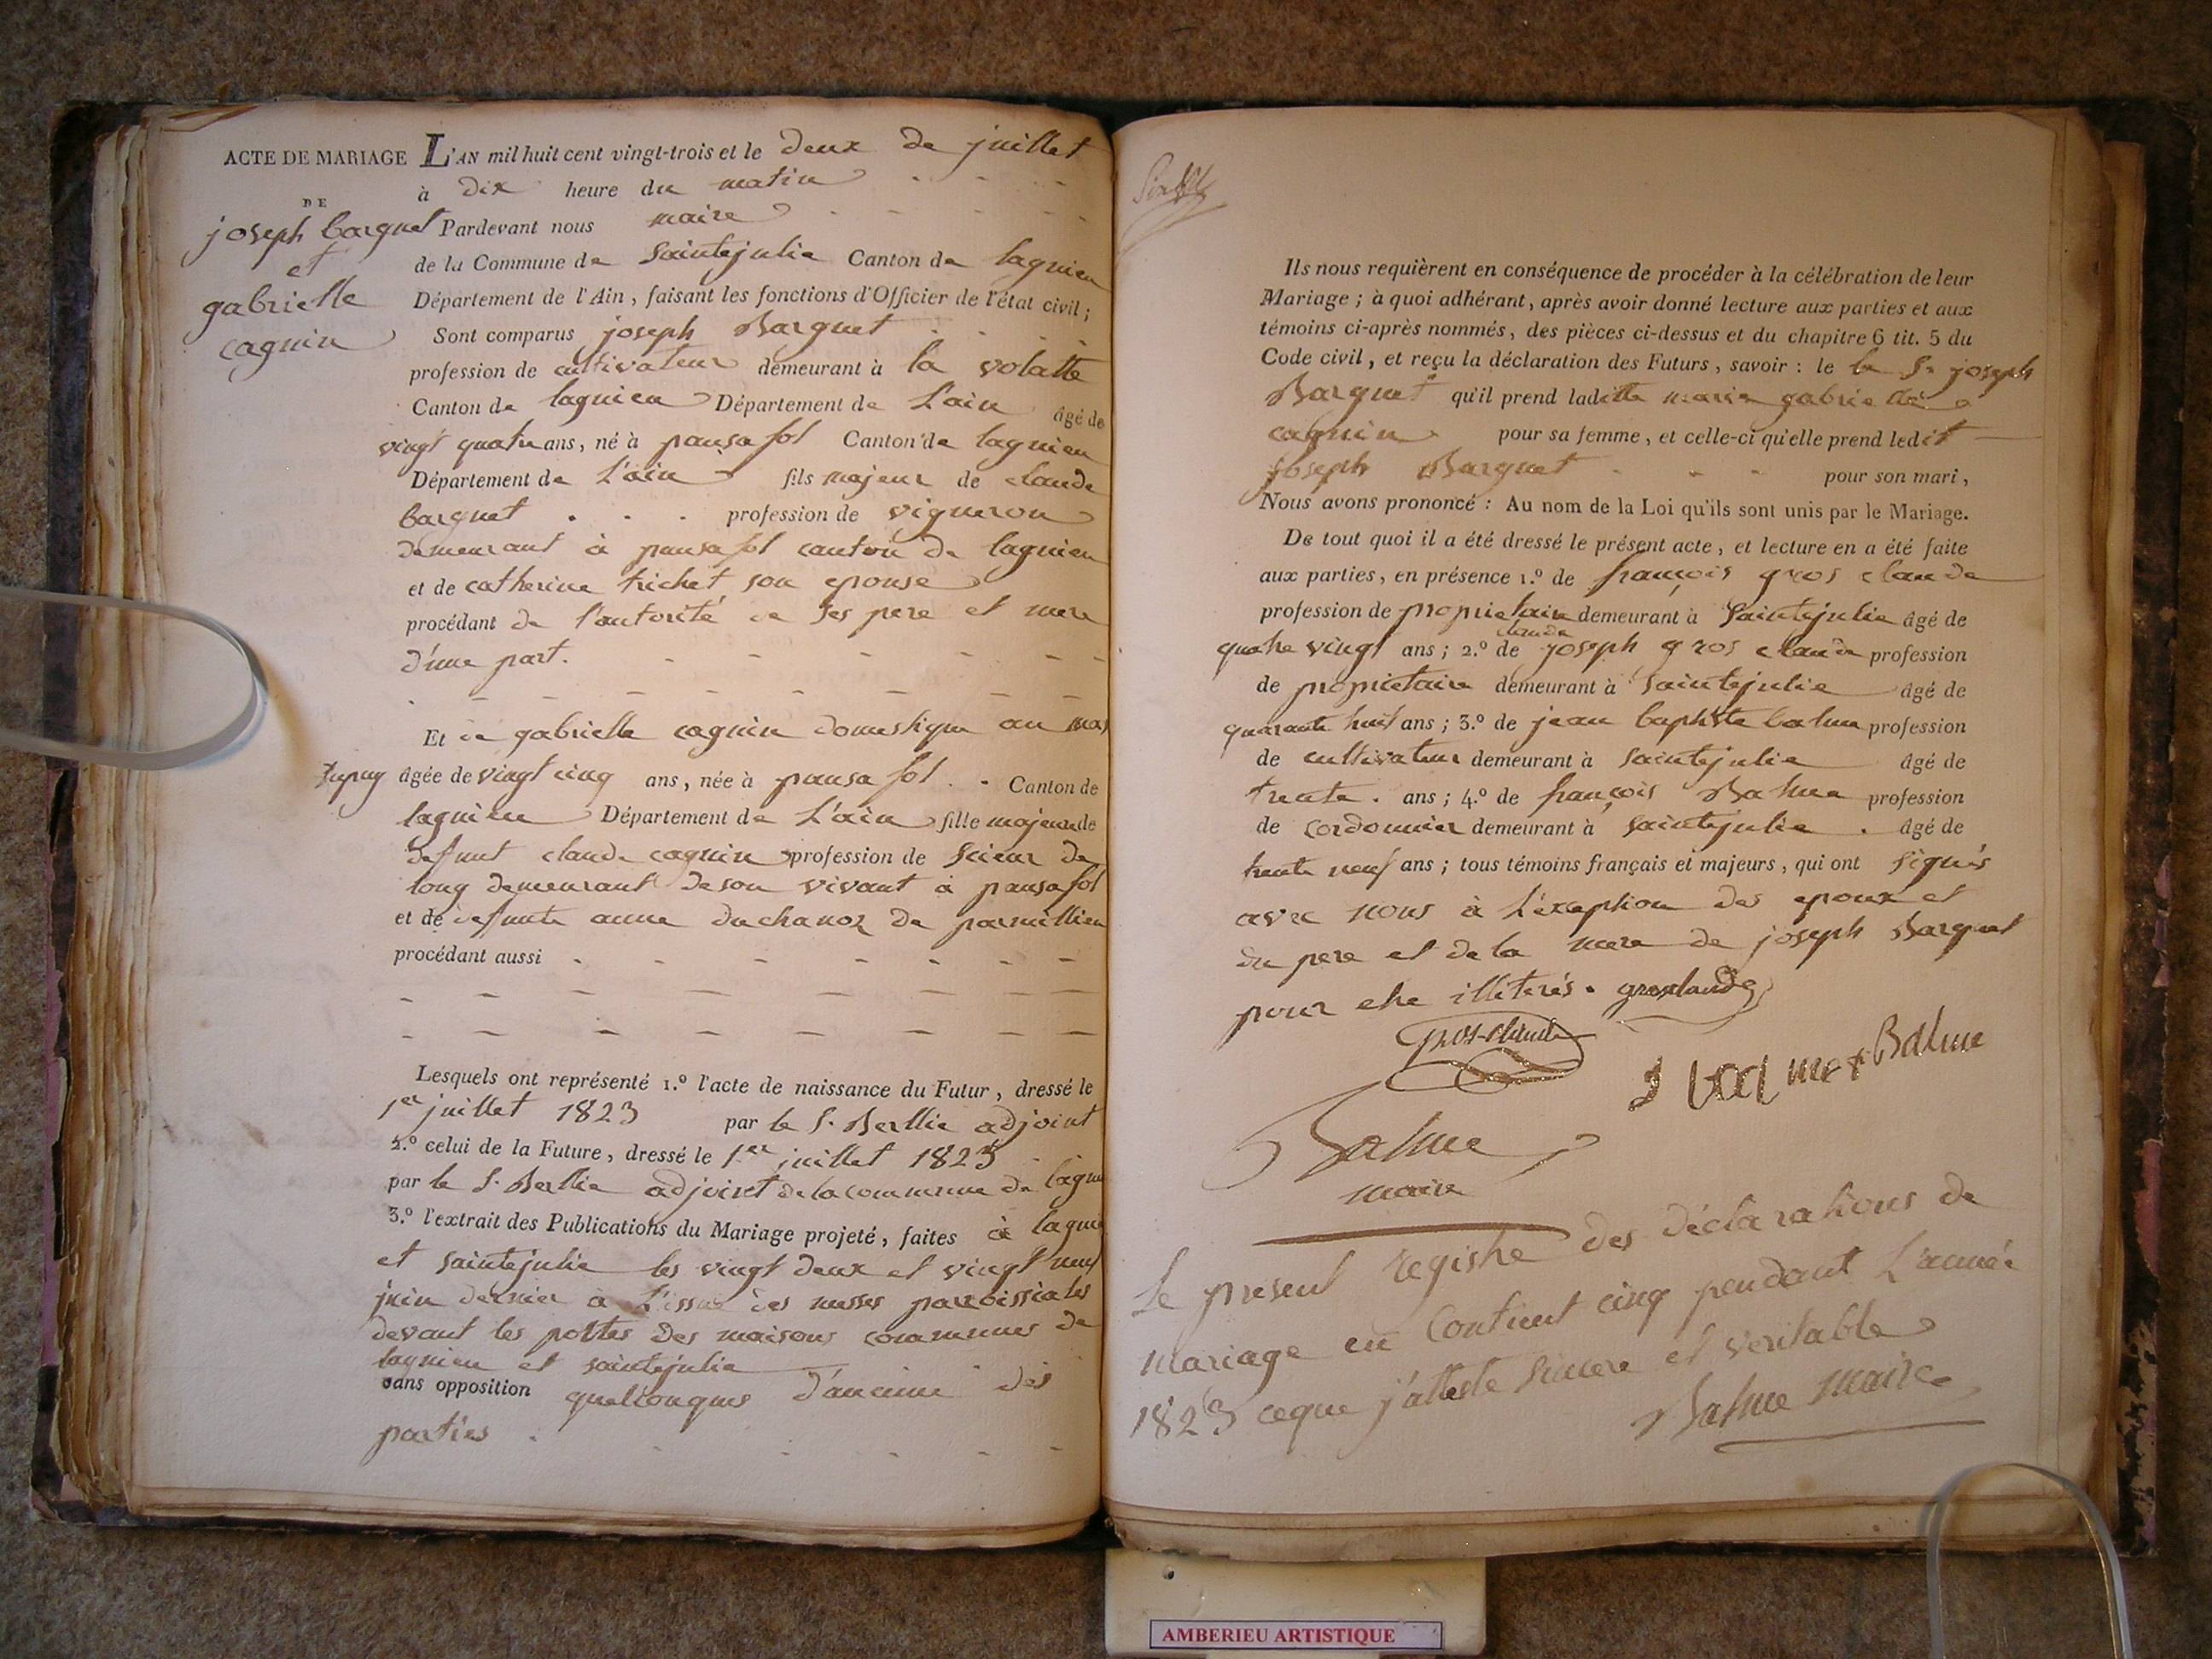 ACTE DE MARIAGE
DE
joseph barguet
et
gabrielle
cagnin
L'AN mil huit cent vingt-trois et le deux de juillet
à dix heure du matin
Pardevant nous maire
de la Commune de Saintejulie Canton de lagnieu
Département de l'Ain, faisant les fonctions d'Officier de l'état civil;
Sont comparus joseph Barguet
profession de cultivateur demeurant à la volatte
Canton de lagnieu Département de L'ain âgé de
vingt quatre ans, né à pansafol Canton de lagnieu
Département de L'ain fils majeur de claude
barguet profession de vigneron
demeurant à pansafol canton de lagnieu
et de catherine trichet son epouse
procédant de l'autorité de ses pere et mere
d'une part.
Et de gabrielle cagnin domestique au mas
dupuy âgée de vingt cinq ans, née à pansafol Canton de
lagnieu Département de L'ain fille majeure de
defunt claude cagnin profession de scieur de
long demeurant de son vivant à pansafol
et de defunte anne duchanoz de parmillieu
procédant aussi
Lesquels ont représenté 1.º l'acte de naissance du Futur, dressé le
1er juillet 1823 par le S. Berllie adjoint
2.º celui de la Future, dressé le 1er juillet 1823
par le S. Berllie adjoint de la commune de lagnieu
3.º l'extrait des Publications du Mariage projeté, faites à lagnieu
et saintejulie les vingt deux et vingt neuf
juin dernier à L'issue des messes parroissiales
devant les portes des maisons communes de
lagnieu et saintejulie
sans opposition quelconques d'aucune des
parties.
Ils nous requièrent en conséquence de procéder à la célébration de leur
Mariage; à quoi adhérant, après avoir donné lecture aux parties et aux
témoins ci-après nommés, des pièces ci-dessus et du chapitre 6 tit. 5 du
Code civil, et reçu la déclaration des Futurs, savoir: le le S. joseph
Barguet qu'il prend laditte marie gabrielle
cagnin pour sa femme, et celle-ci qu'elle prend ledit
joseph Barguet pour son mari,
Nous avons prononcé: Au nom de la Loi qu'ils sont unis par le Mariage.
De tout quoi il a été dressé le présent acte, et lecture en a été faite
aux parties, en présence 1.º de françois gros claude
profession de propriétaire demeurant à Saintejulie âgé de
quatre vingt ans; 2.º de claude joseph gros claude profession
de propriétaire demeurant à saintejulie âgé de
quarante huit ans; 3.º de jean baptiste balme profession
de cultivateur demeurant à saintejulie âgé de
trente. ans; 4.º de françois Balme profession
de cordonnier demeurant à saintejulie. âgé de
trente neuf ans; tous témoins français et majeurs, qui ont signés
avec nous à L'exception des epoux et
du pere et de la mere de joseph Barguet
pour etre illiterés. grosclaude
gros-claude
Balme
Balme
maire
Le present registre des déclarations de
mariage en Contient cinq pendant L'année
1823 ceque j'atteste sincere et veritable
Balme maire
AMBERIEU ARTISTIQUE